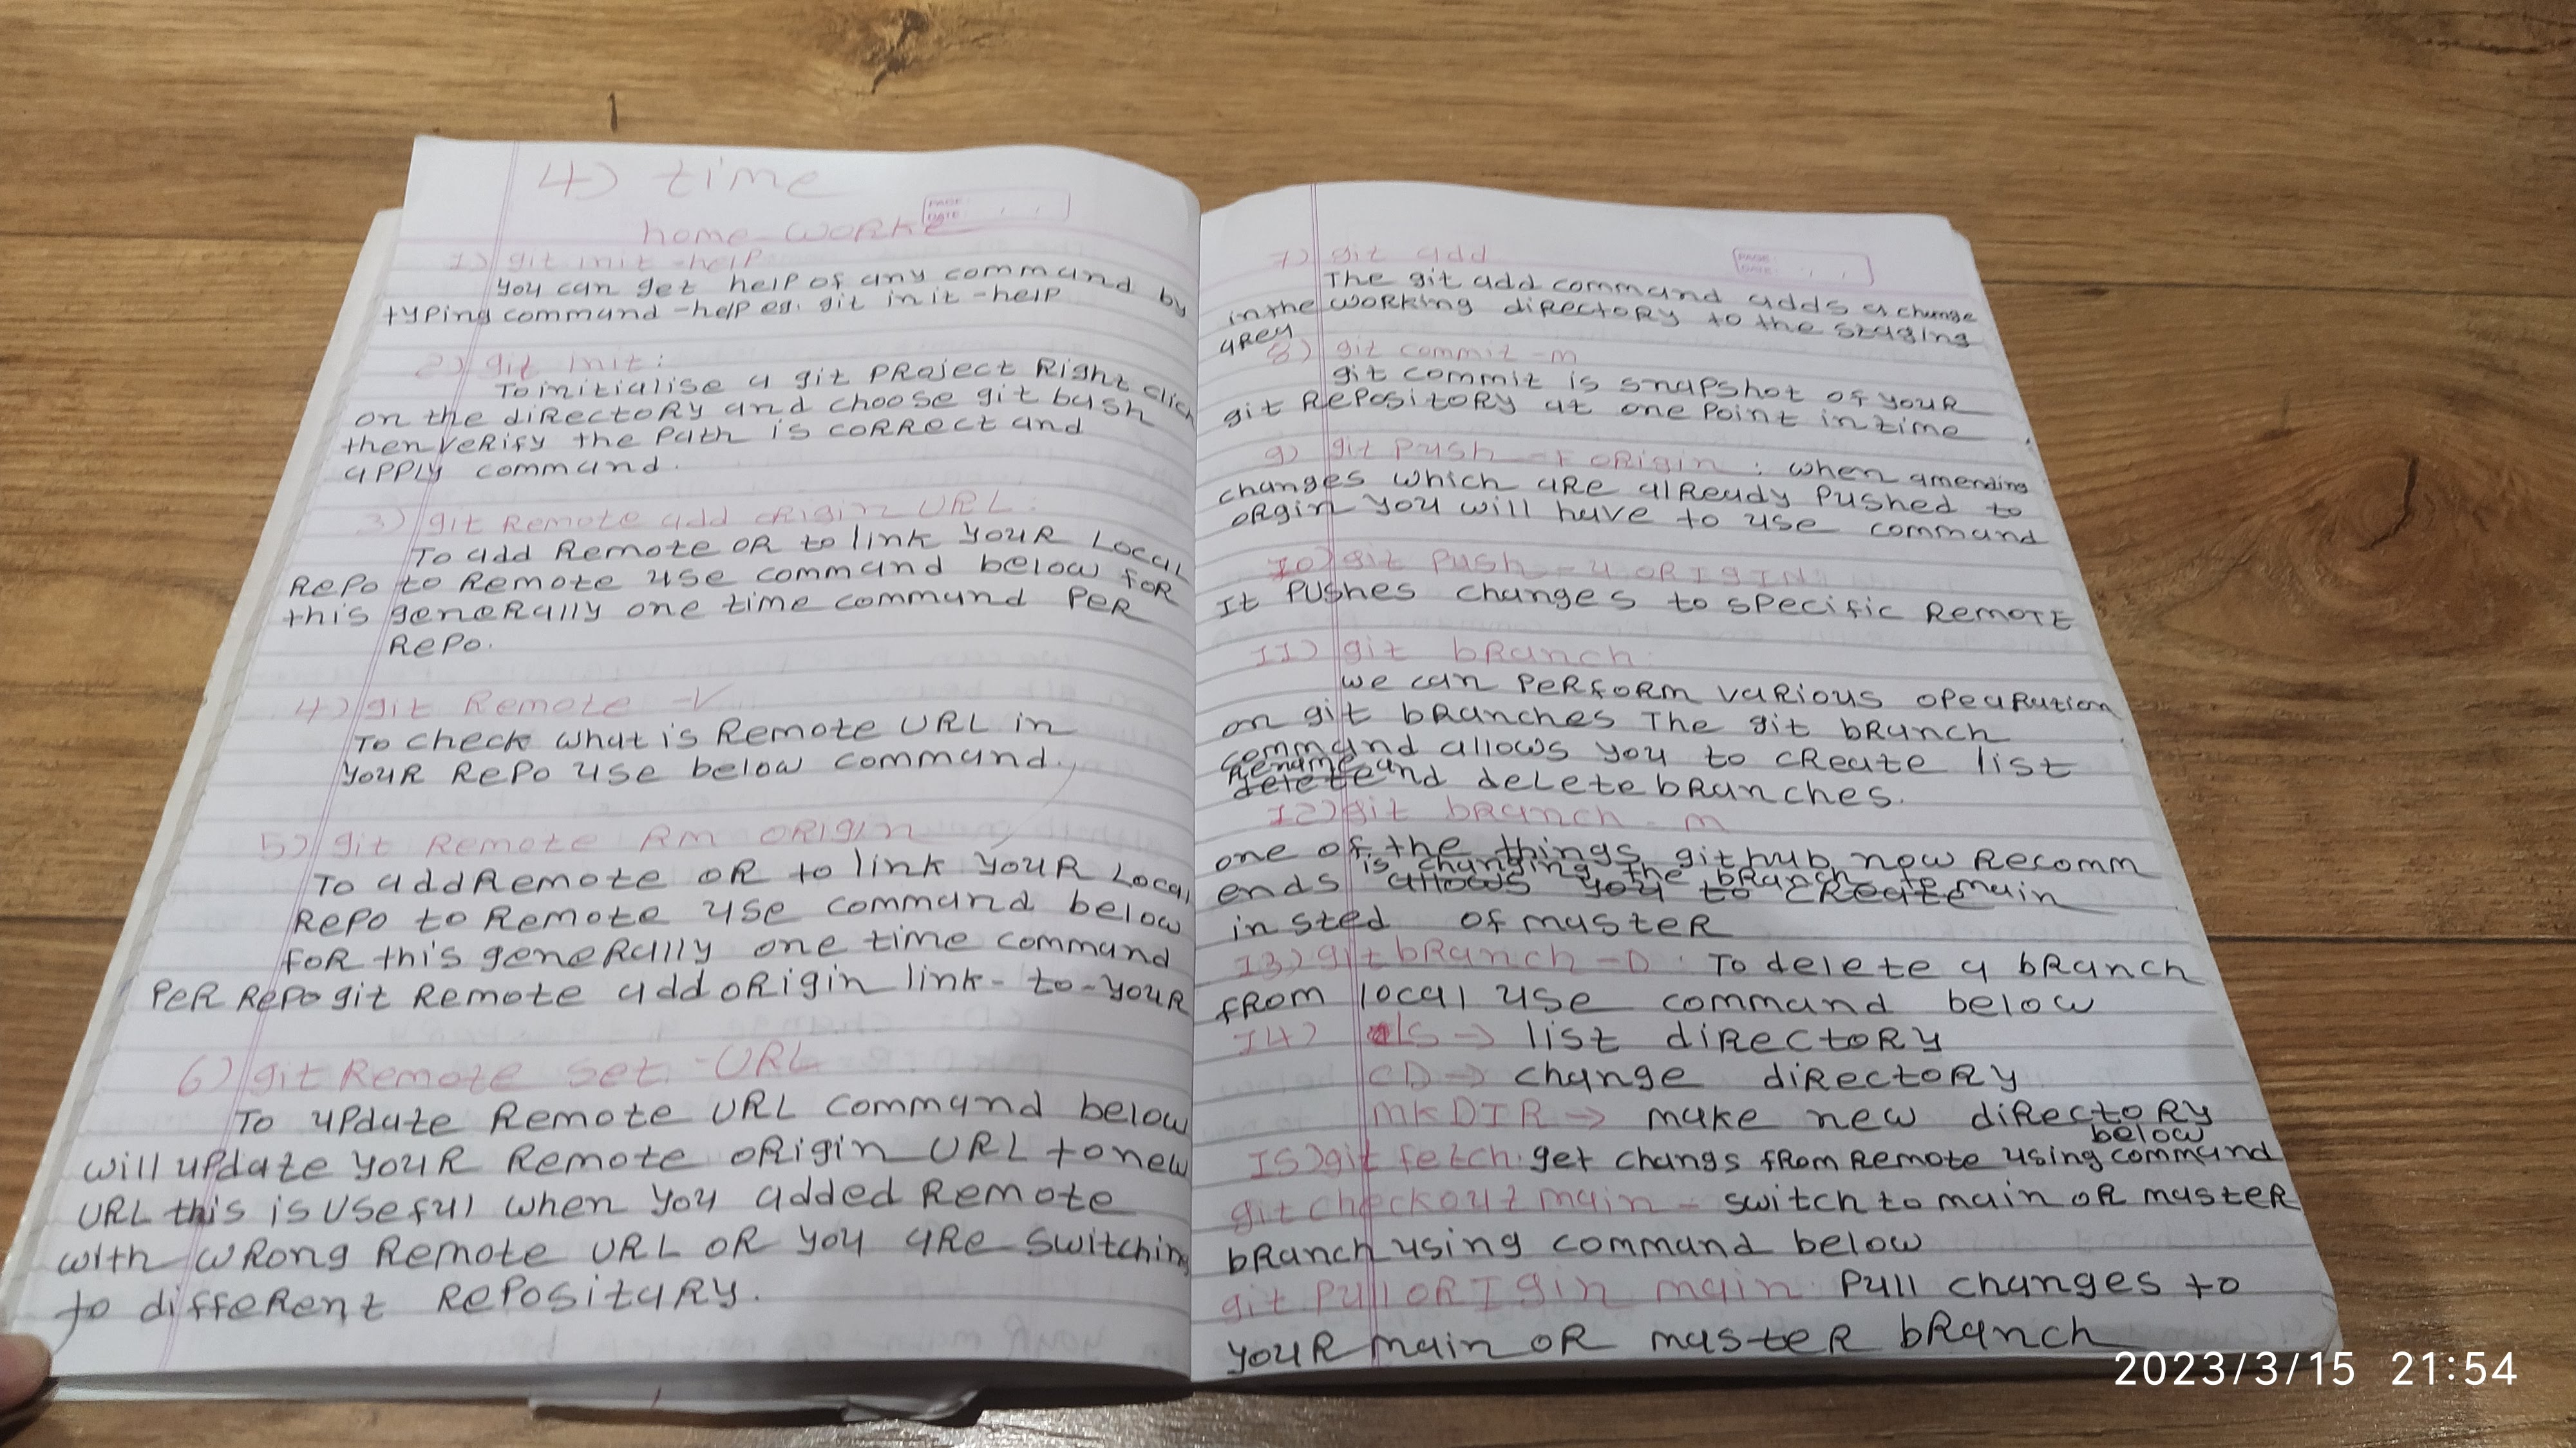 4) time
PAGE
DATE
home worke
1) git init -help
you can get help of any command by
typing command -help eg. git init -help
2) git init:
To initialise a git PRoject Right click
on the diRectoRy and choose git bash
then veRify the Path is coRRect and
apply command.
3) git Remote add oRigin URL:
To add Remote OR to link youR Local
RePo to Remote use command below foR
this geneRally one time command PeR
RePo.
4) git Remote -V
To check what is Remote URL in
YouR RePo use below command.
5) git Remote Rm oRigin
To add Remote oR to link youR Local
RePo to Remote use command below
foR this geneRally one time command
PeR RePo git Remote add oRigin link-to-youR
6) git Remote set -URL
To update Remote URL command below
will update youR Remote oRigin URL to new
URL this is useful when you added Remote
with wRong Remote URL oR you aRe switching
to diffeRent RePositaRy.
PAGE
DATE
7) git add
The git add command adds a change
in the woRking diRectoRy to the staging
aRea
8) git commit -m
git commit is snapshot of youR
git RePositoRy at one Point in time
9) git Push -f oRigin : when amending
changes which aRe alReady Pushed to
oRgin you will have to use command
10) git Push -u ORIGIN:
It Pushes changes to sPecific RemoTE
11) git bRanch
we can PeRfoRm vaRious oPeaRation
on git bRanches The git bRanch
command allows you to cReate list
Rename and
delete and deLete bRanches.
12) git bRanch -m
one of the things github now Recomm
is changing the bRanch to main
ends allows you to cReate
in sted of masteR
13) git bRanch -D. To delete a bRanch
fRom local use command below
14) LS → list diRectoRy
CD → change diRectoRy
mkDIR → make new diRectoRy
below
15) git fetch: get changs fRom Remote using command
git checkout main - switch to main oR masteR
bRanch using command below
git Pull oRIgin main: Pull changes to
youR main oR masteR bRanch
2023/3/15 21:54